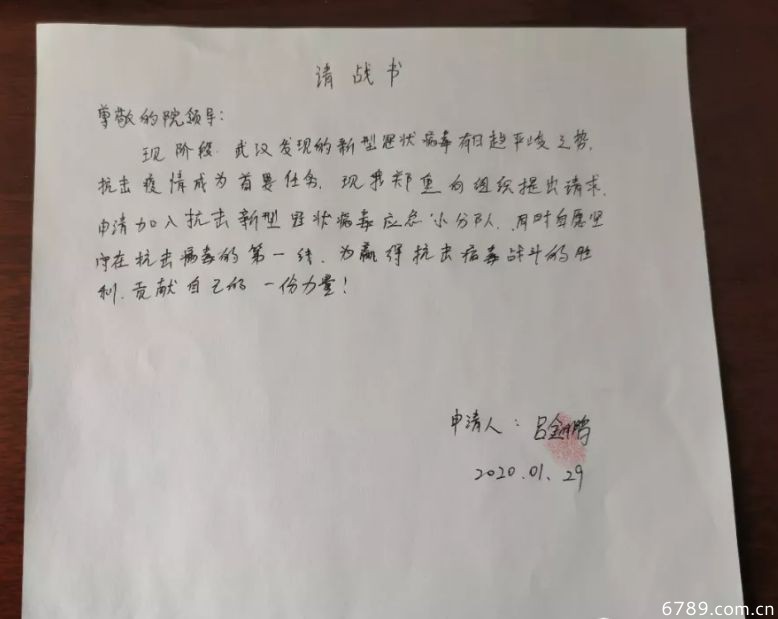 请战书
尊敬的院领导：
现阶段，武汉发现的新型冠状病毒有日趋严峻之势，
抗击疫情成为首要任务，现我郑重向组织提出请求，
申请加入抗击新型冠状病毒应急小分队，同时自愿坚
守在抗击病毒的第一线，为赢得抗击病毒战斗的胜
利，贡献自己的一份力量！
申请人：吕金鹏
2020.01.29
6789.com.cn